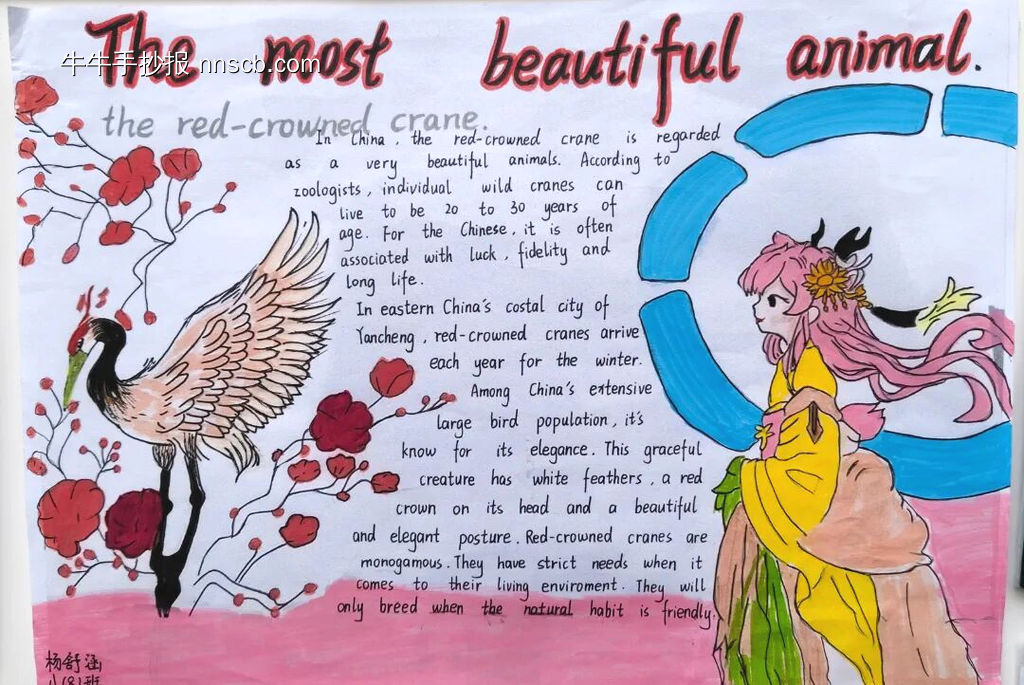 The most beautiful animal.
牛牛手抄报 nnscb.com
the red-crowned crane.
In China, the red-crowned crane is regarded
as a very beautiful animals. According to
zoologists, individual wild cranes can
live to be 20 to 30 years of
age. For the Chinese, it is often
associated with luck, fidelity and
long life.
In eastern China's costal city of
Yancheng, red-crowned cranes arrive
each year for the winter.
Among China's extensive
large bird population, it's
know for its elegance. This graceful
creature has white feathers, a red
crown on its head and a beautiful
and elegant posture. Red-crowned cranes are
monogamous. They have strict needs when it
comes to their living enviroment. They will
only breed when the natural habit is friendly.
杨舒涵
八(8)班